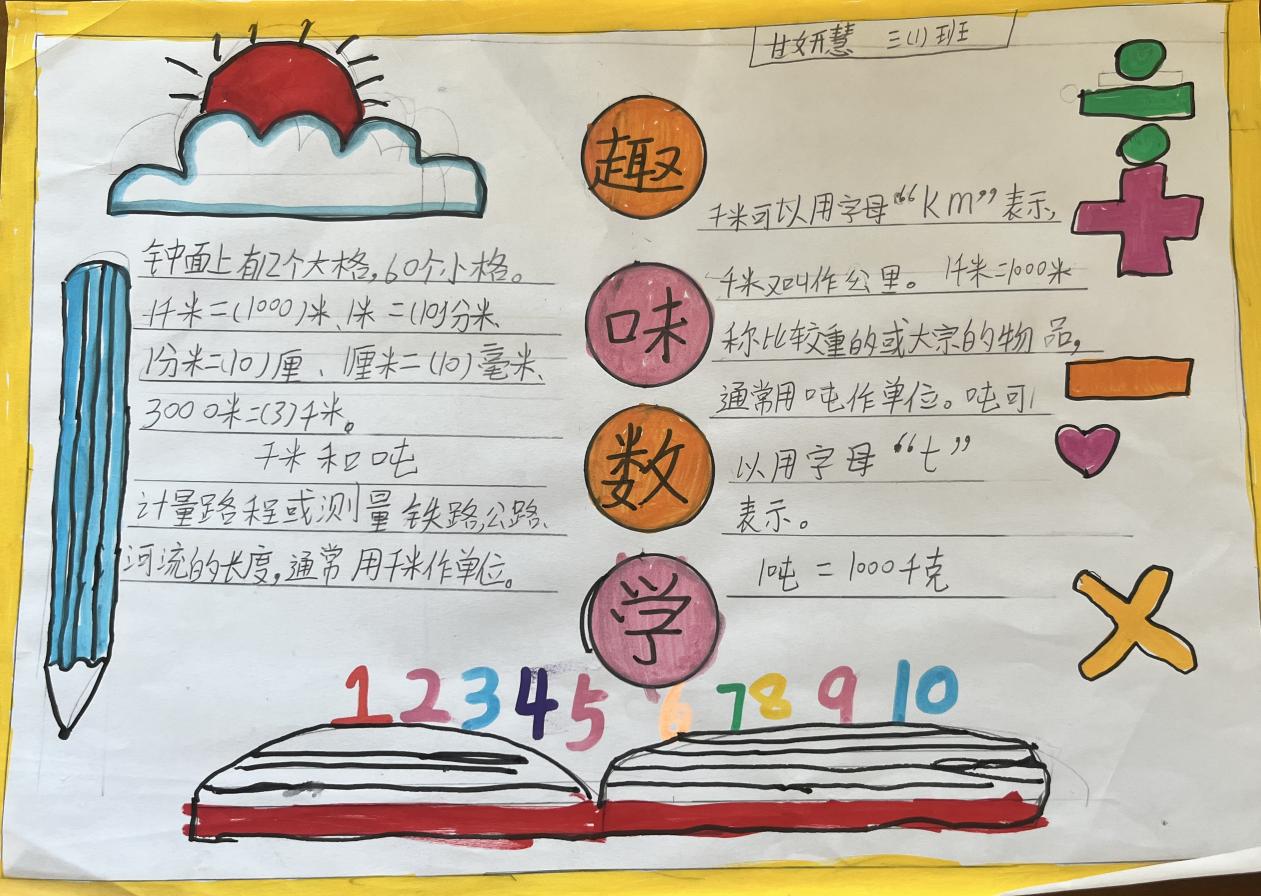 甘妍慧 三(1)班
趣
味
数
学
钟面上有12个大格,60个小格。
1千米=(1000)米、1米=(10)分米、
1分米=(10)厘、1厘米=(10)毫米、
3000米=(3)千米。
千米和吨
计量路程或测量铁路、公路、
河流的长度,通常用千米作单位。
千米可以用字母“km”表示,
千米又叫作公里。1千米=1000米
称比较重的或大宗的物品,
通常用吨作单位。吨可
以用字母“t”
表示。
1吨=1000千克
1 2 3 4 5 6 7 8 9 10